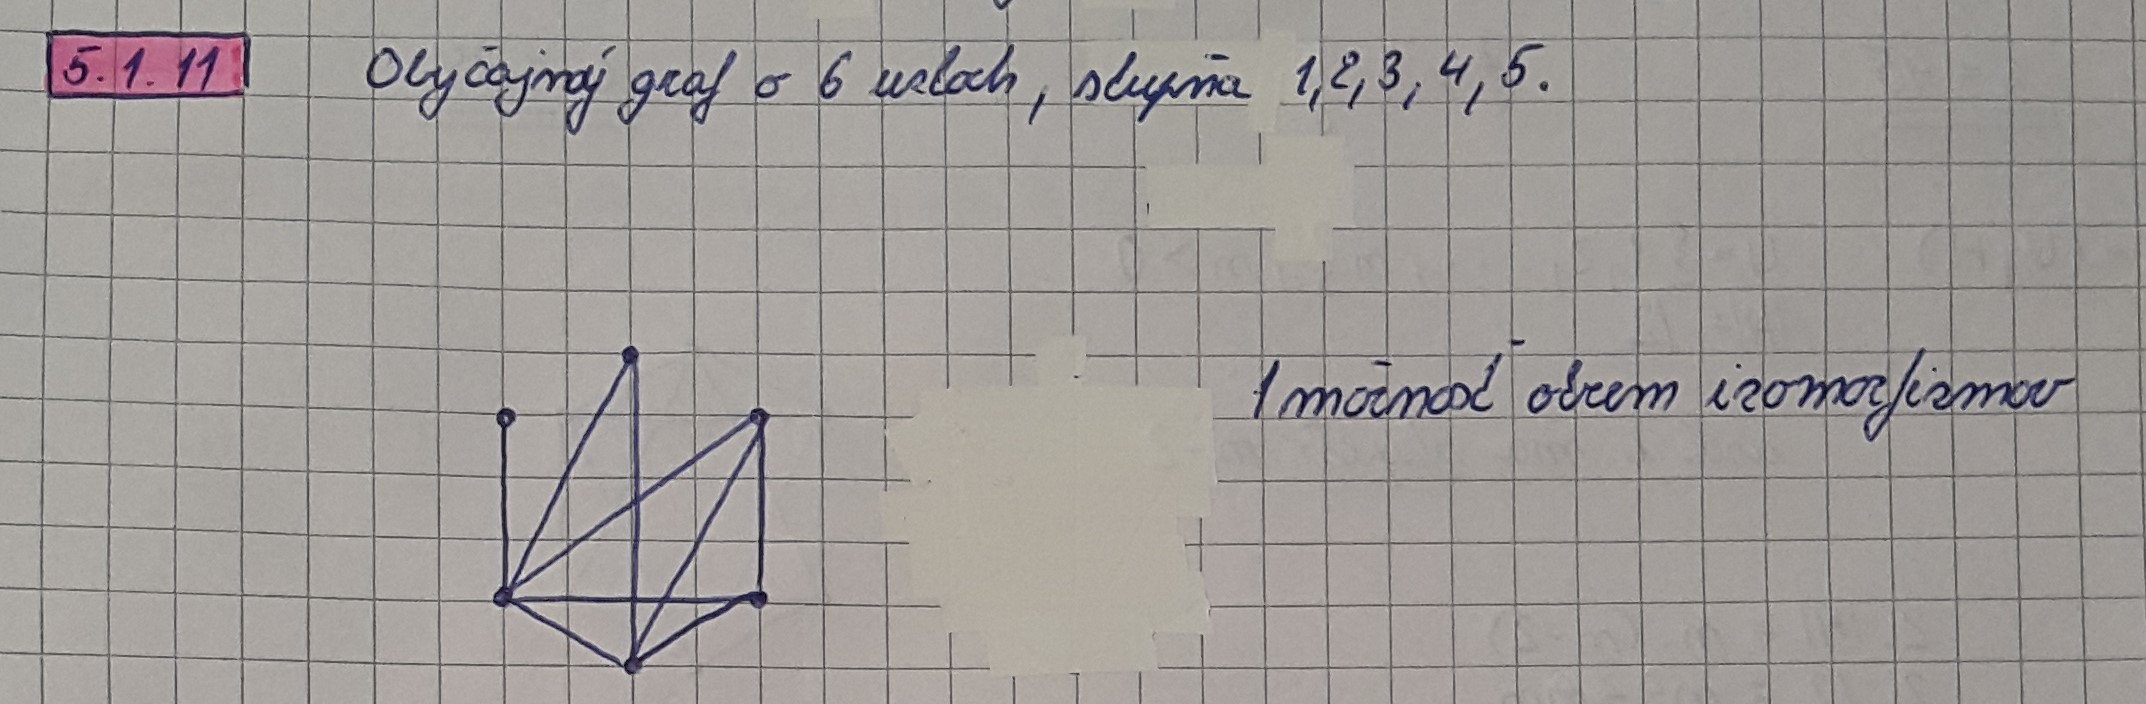 5.1.11 Obyčajný graf o 6 uzloch, stupňa 1,2,3,4,5.
1 možnosť okrem izomorfizmov